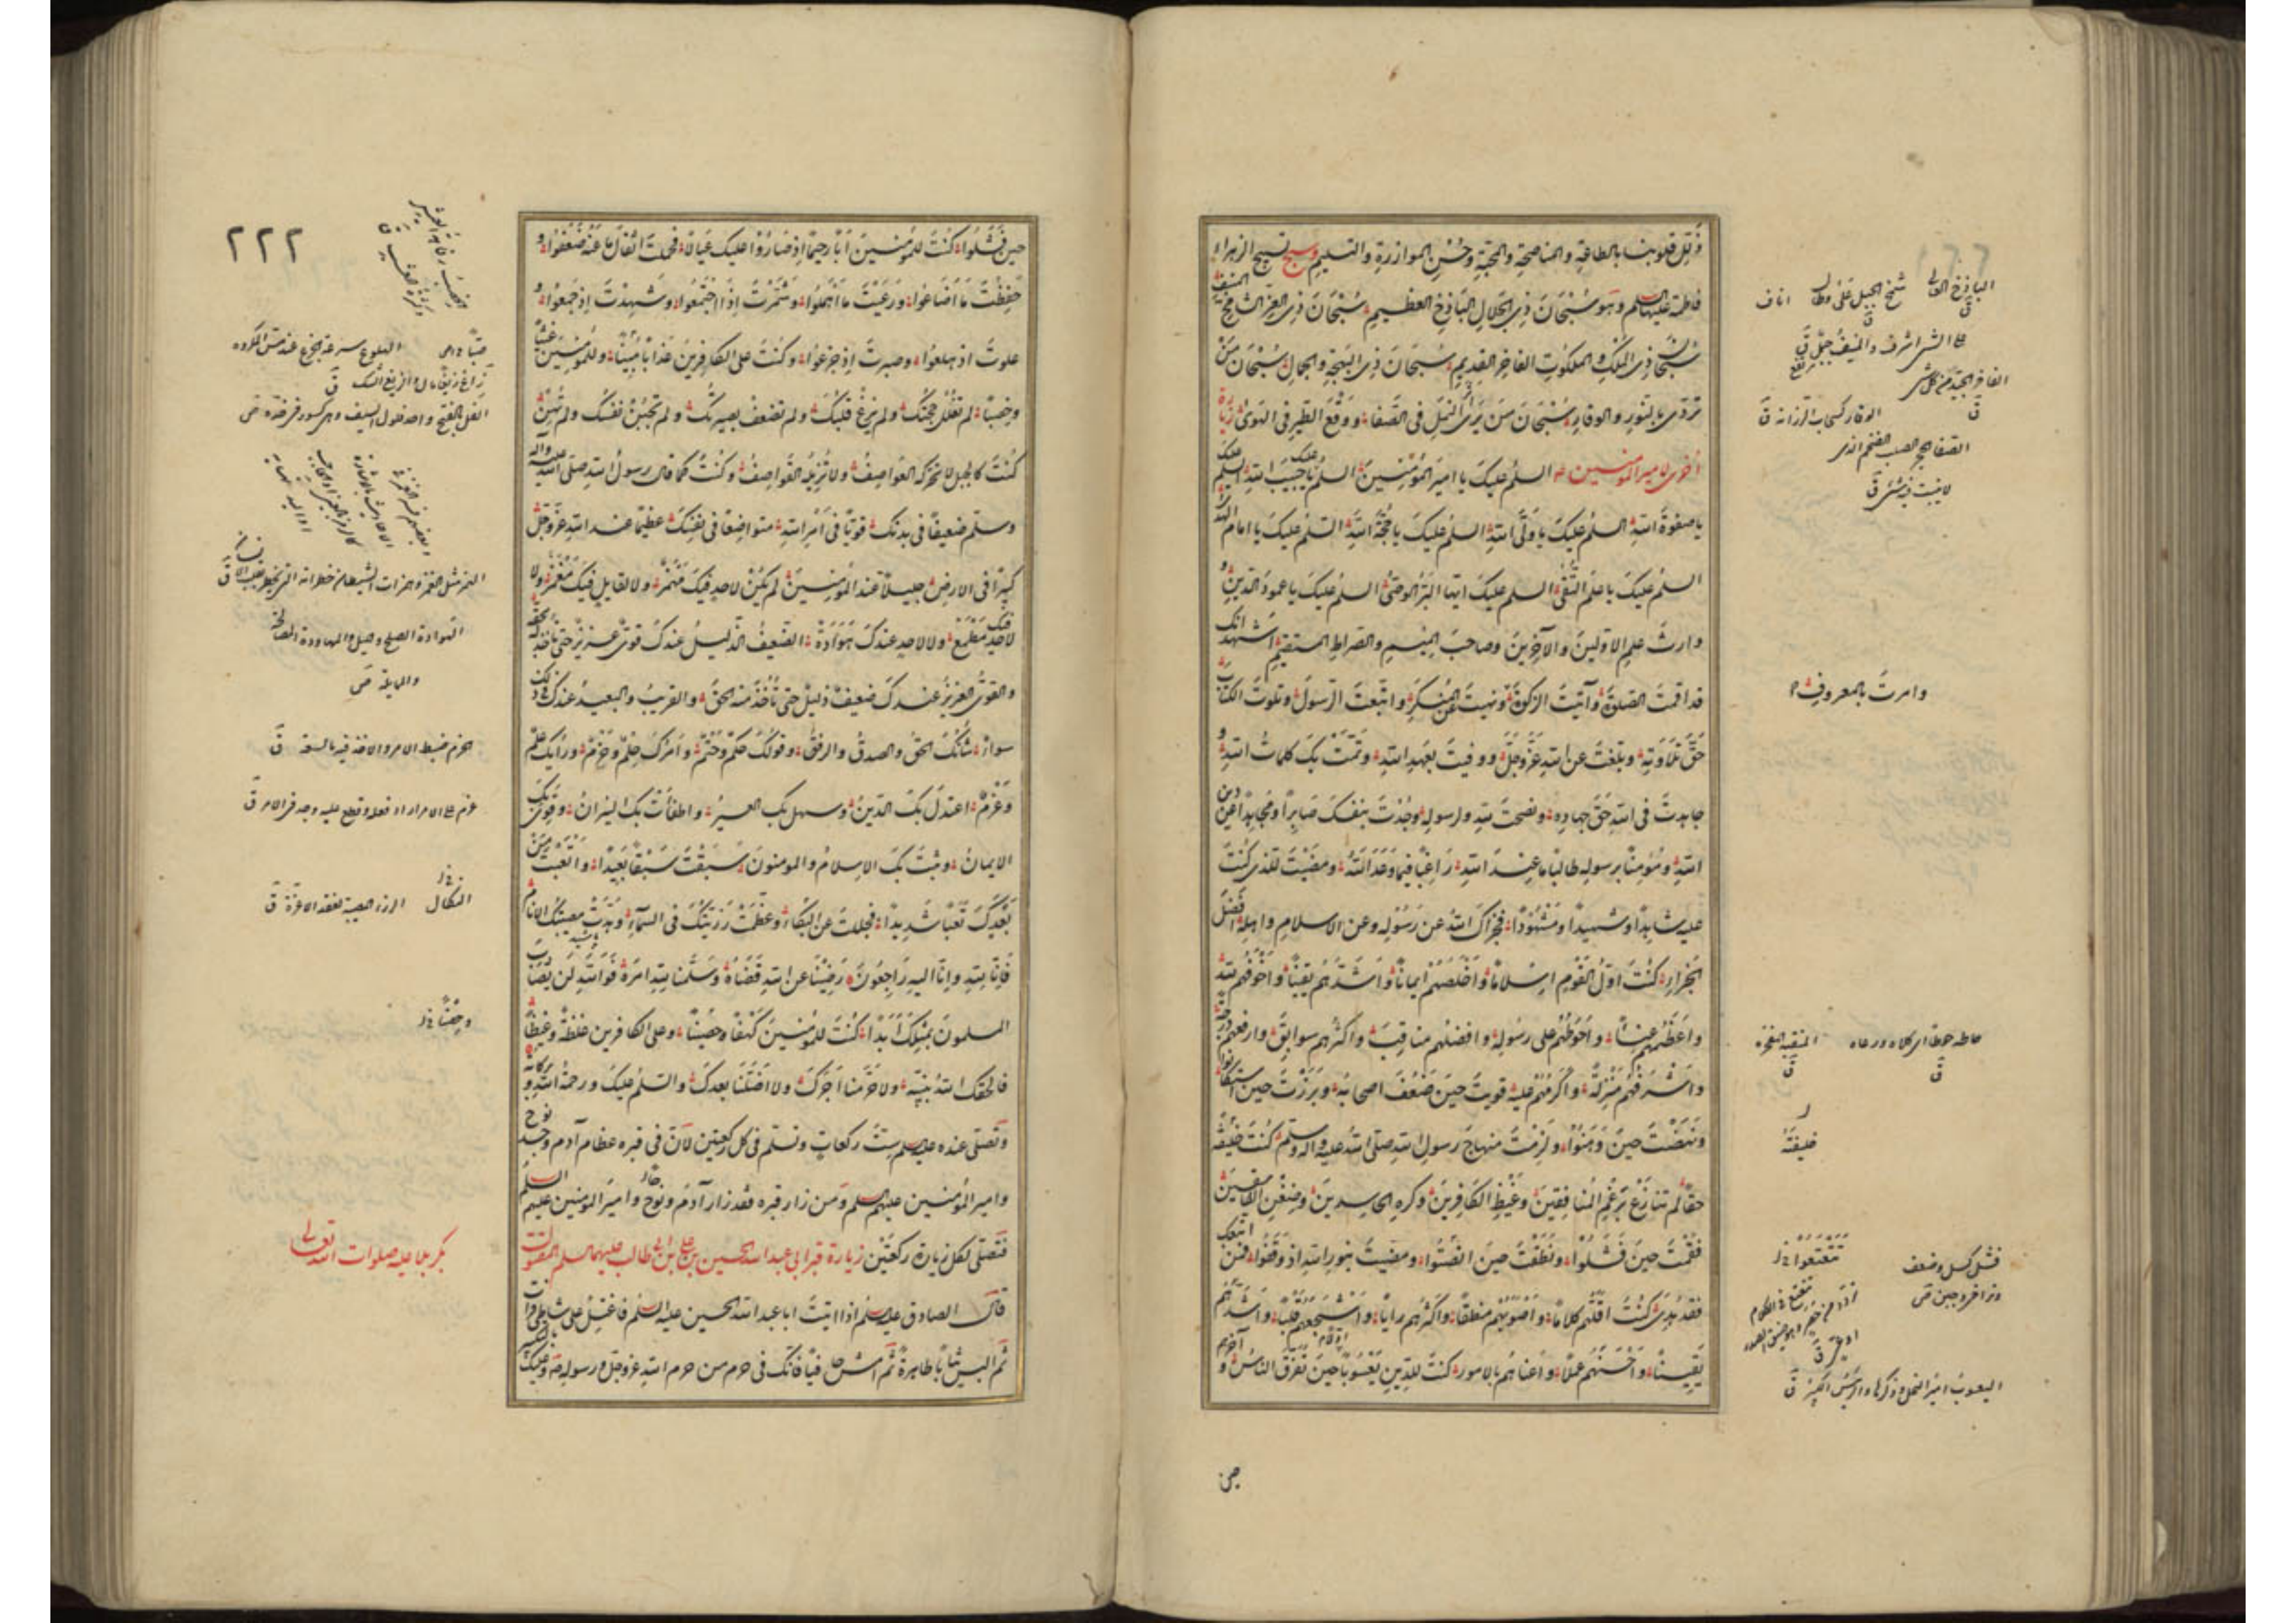 وَذَلِّل قلوبنا بالطاعة والمناصحة والمحبة وحُسْنِ الموازرة والتسليم وسبح تسبيح الزهراء
فاطمة عليها السلم وهو سُبْحَانَ ذِي الجلالِ البَاذِخِ العظيمِ سُبْحَانَ ذِي العِزِّ الشامخ المنيف
سُبحان ذي المُلْكِ والملكوتِ الفاخرِ القديمِ سُبحانَ ذي البهجةِ والجمالِ سُبْحَان مَنْ
تَرَدّى بالنُورِ والوقارِ سُبْحَانَ مَنْ يَرَى أثر النَّمَلِ في الصَّفَا ووَقْعَ الطَيرِ في الهوى زيارة
أخرى لامير المومنين السلمُ عليكَ يا اميرَ المُؤْمِنِينَ السلمُ عليك يا حَبيبَ اللهِ السلم عليك
يا صفوةَ اللهِ السلمُ عليكَ يا وَلِيَّ اللهِ السلمُ عليكَ يا حُجَّةَ اللهِ السّلم عليكَ يا امام الهدى
السلمُ عليكَ يا عَلَمَ التُّقَى السلم عليكَ ايّها البَرُّ الوصيُّ السلمُ عليكَ يا عمودَ الدّينِ و
وارثَ علمِ الاوّلينَ والآخِرينَ وصاحبَ المِيسمِ والصّراطِ المستقيمِ اَشهدُ انك
قد اقمتَ الصلوةَ وآتيتَ الزكوةَ ونهيتَ عن المُنْكَرِ واتّبعتَ الرّسولَ وتلوتَ الكتابَ
حَقَّ تِلَاوَتِهِ وبلّغتَ عن اللهِ عَزَّوجلَّ ووفيتَ بعهدِ اللهِ وتَمَّتْ بِكَ كلماتُ اللهِ و
جاهدتَ في اللهِ حَقَّ جهادِهِ ونصحتَ للهِ ولرسولِهِ وجُدْتَ بنفسكَ صَابِراً ومُجاهِداً عن دين
اللهِ ومُؤمِناً برسولِهِ طالباً ما عندَ اللهِ رَاغِباً فيما وَعَدَ اللهُ ومضَيْتَ للذي كنتَ
عليه شاهِداً وشهيداً ومَشْهُوداً فجزاكَ اللهُ عن رَسُولِهِ وعن الاسلامِ واهلِهِ اَفضَلَ
الجَزاءِ كُنْتَ اوّلَ القَوْمِ اِسْلاماً واَخْلَصَهُمْ ايماناً واَشَدَّهُم يقيناً واَخْوَفَهُم للهِ
واَعْظَمَهُم عَناءً واَحْوَطَهُم على رسُولِهِ وافضلَهم مناقِبَ واكثرَهم سوابِقَ وارفعهم درجة
واَشْرَفَهُم مَنْزِلةً واَكْرَمَهُمْ عليهِ قويتَ حينَ ضَعُفَ اصحابُهُ وبَرَزْتَ حينَ استكانوا
ونهَضْتَ حينَ وَهَنُوا ولَزِمْتَ منهاجَ رسولِ اللهِ صلّى اللهُ عليه وآله وسلم كُنْتَ خليفته
حقّا لم تنازَعْ بِرَغْمِ المُنافقينَ وغَيْظِ الكافِرينَ وكرهِ الحاسِدينَ وضِغْنِ الفاسقينَ
فقُمْتَ حينَ فَشِلُوا ونَطَقْتَ حينَ تَعْتَعُوا ومضيتَ بنورِ اللهِ اذ وَقَفُوا فمن اتبعك
فقد هُدِىَ كُنْتَ اَقَلَّهُم كلاماً واَصْوَبَهُم منطقاً واكثرَهم راياً واَشْجَعَهُم قلباً واَشَدَّهُم
يَقِيناً واَحْسَنَهُم عملاً واَعناهُم بالامورِ كنتَ للدّينِ يَعْسُوباً حينَ تفرّقَ الناسُ و
الباذخ العالي شمخ الجبل عَلَى وطال
على الشئ اشرف والمنيف جبل ق
الفاخر الجيد من كل شئ
الوقار كسحاب الرزانة ق
الصفا الحجر الصلد الضخم الذي
لا ينبت فيه شئ ق
وامرتَ بالمعروفِ
حاطه حوطا اي كلاه ورعاه ق
المنقبة المفخرة ق
خليفتَهُ
تَعْتَعُوا خ ل
فشل كسل وضعف
اليعسوبُ اميرُ النحل وذكرها والرئيس الكبير ق
٢٢٢
حين فَشَلُوا كُنْتَ للمُؤمِنينَ اَباً رحيماً اِذ صَارُوا عليكَ عيالاً فحملتَ اثقالَ ما عَنْهُ ضَعُفُوا و
حَفِظْتَ مَا اَضَاعُوا ورَعَيْتَ ما اَهْمَلُوا وشَمَّرْتَ اِذا اجْتَمَعُوا وشَهِدْتَ اِذ جَمَعُوا و
علوتَ اذ هلعُوا وصبرتَ اِذ جَزِعُوا وكُنْتَ على الكافرينَ عذاباً مُبيناً وللمُؤمنين غيثاً
وخِصْباً لم تُفْلَلْ حجّتك ولم يَزغْ قلبُكَ ولم تضعفْ بصيرتُكَ ولم تَجْبُنْ نفسُكَ ولم تَهِنْ
كُنتَ كالجبلِ لا تحرّكه العَواصِفُ ولا تُزيلُه القَواصِفُ وكنتَ كما قال رسولُ اللهِ صلى الله عليه وآله
وسلّم ضعيفاً في بدنك قوِيّاً في اَمْرِ اللهِ متواضِعاً في نفسِكَ عظيماً عند اللهِ عزّوجلّ
كبيراً في الارضِ جليلاً عندَ المُؤمنِينَ لم يَكُنْ لاحدٍ فيكَ مَهْمَزٌ ولا لقايلٍ فيكَ مَغْمَزٌ ولا
لاحدٍ فيك مَطْمَعٌ ولا لاحدٍ عندكَ هَوَادَةٌ الضعيفُ الذّليلُ عندكَ قوىٌّ عزيزٌ حتى تاخذ له بحقه
والقوىُّ العزيزُ عندكَ ضعيفٌ ذليلٌ حتى تَأخُذَ منه الحقَّ والقريبُ والبعيدُ عندكَ في ذلك
سواءٌ شَأنُكَ الحقُّ والصدقُ والرفقُ وقولُكَ حُكْمٌ وحَتْمٌ واَمرُكَ حِلمٌ وحَزْمٌ ورأيُك علمٌ
وعَزْمٌ اعتدلَ بكَ الدّينُ وسهلَ بك العسيرُ واطفأتْ بك النيرانُ وقَوِىَ بك
الايمانُ وثبتَ بكَ الاسلامُ والمومنونَ سَبَقْتَ سَبْقاً بَعيداً واَتْعَبْتَ مَنْ
بَعْدِكَ تَعَباً شديداً فجللتَ عن البُكاءِ وعَظُمَتْ رَزيّتُكَ في السمآءِ وهَدَّتْ مصيبتُكَ الانامَ
فَاِنّا للهِ وانّا اليهِ راجِعُونَ رَضِيْنَا عن اللهِ قَضَاهُ وسَلَّمنا للهِ امرَهُ فَوَاللهِ لَن يُصَابَ
المسلمونَ بمثلِكَ اَبَداً كُنْتَ للمُؤمنينَ كَهْفاً وحِصْناً وعلى الكافرين غلظَةً وغيظاً
فالحقك اللهُ بنبيّهِ ولا حَرَمَنا اَجْرَكَ ولا اَضَلَّنا بعدَكَ والسّلمُ عليكَ ورحمةُ اللهِ وبركاته
وتصلّى عنده عليه السلم سِتَّ ركعاتٍ وتسلم في كلّ ركعتين لانّ في قبره عظام آدم وجسد نوح
وامير المؤمنين عليهم السلم ومن زار قبره فقد زار آدم ونوح وامير المومنين عليهم السلم
فتصلّى لكل زيارة ركعتين زيارة قبر ابي عبد الله الحسين بن علي بن ابي طالب عليهما السلم المقتول
قال الصادق عليه السلم اذا اتيتَ ابا عبد الله الحسين عليه السلم فاغتسل على شاطئ فرات
ثم البس ثياباً طاهرةً ثم امش حافياً فانّكَ في حرم من حرم اللهِ عزوجل ورسوله وعليك بالتكبير
الهلوع سرعة الجزع عند مس المكروه
الهوادة الصلح والميل والمهاودة المصالحة
والممايلة ص
الحزم ضبط الامر والاخذ فيه بالثقة ق
عزم على الامر اراد فعله وقطع عليه وجد في الامر ق
الرزء المصيبة بفقد الاعزة ق
بكربلا عليه صلوات الله تعالى